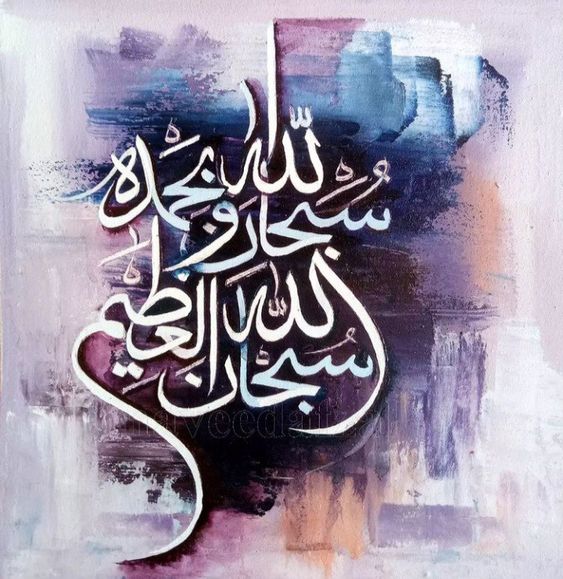 سُبْحَانَ اللّٰهِ وَبِحَمْدِهِ
سُبْحَانَ اللّٰهِ الْعَظِيمِ